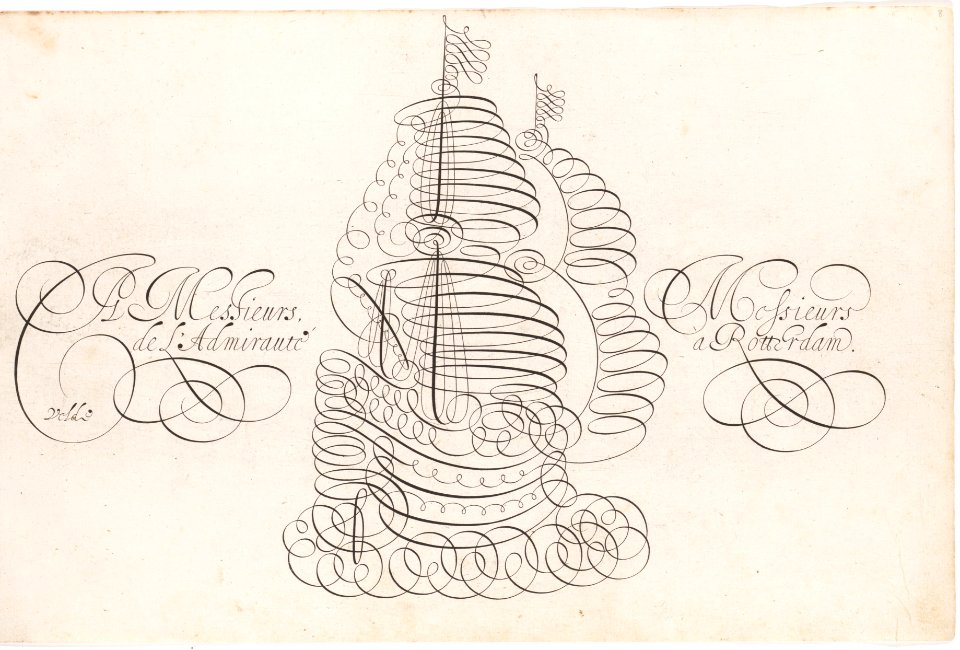 A Messieurs, Messieurs
de l'Admirauté à Rotterdam.
Velde
8